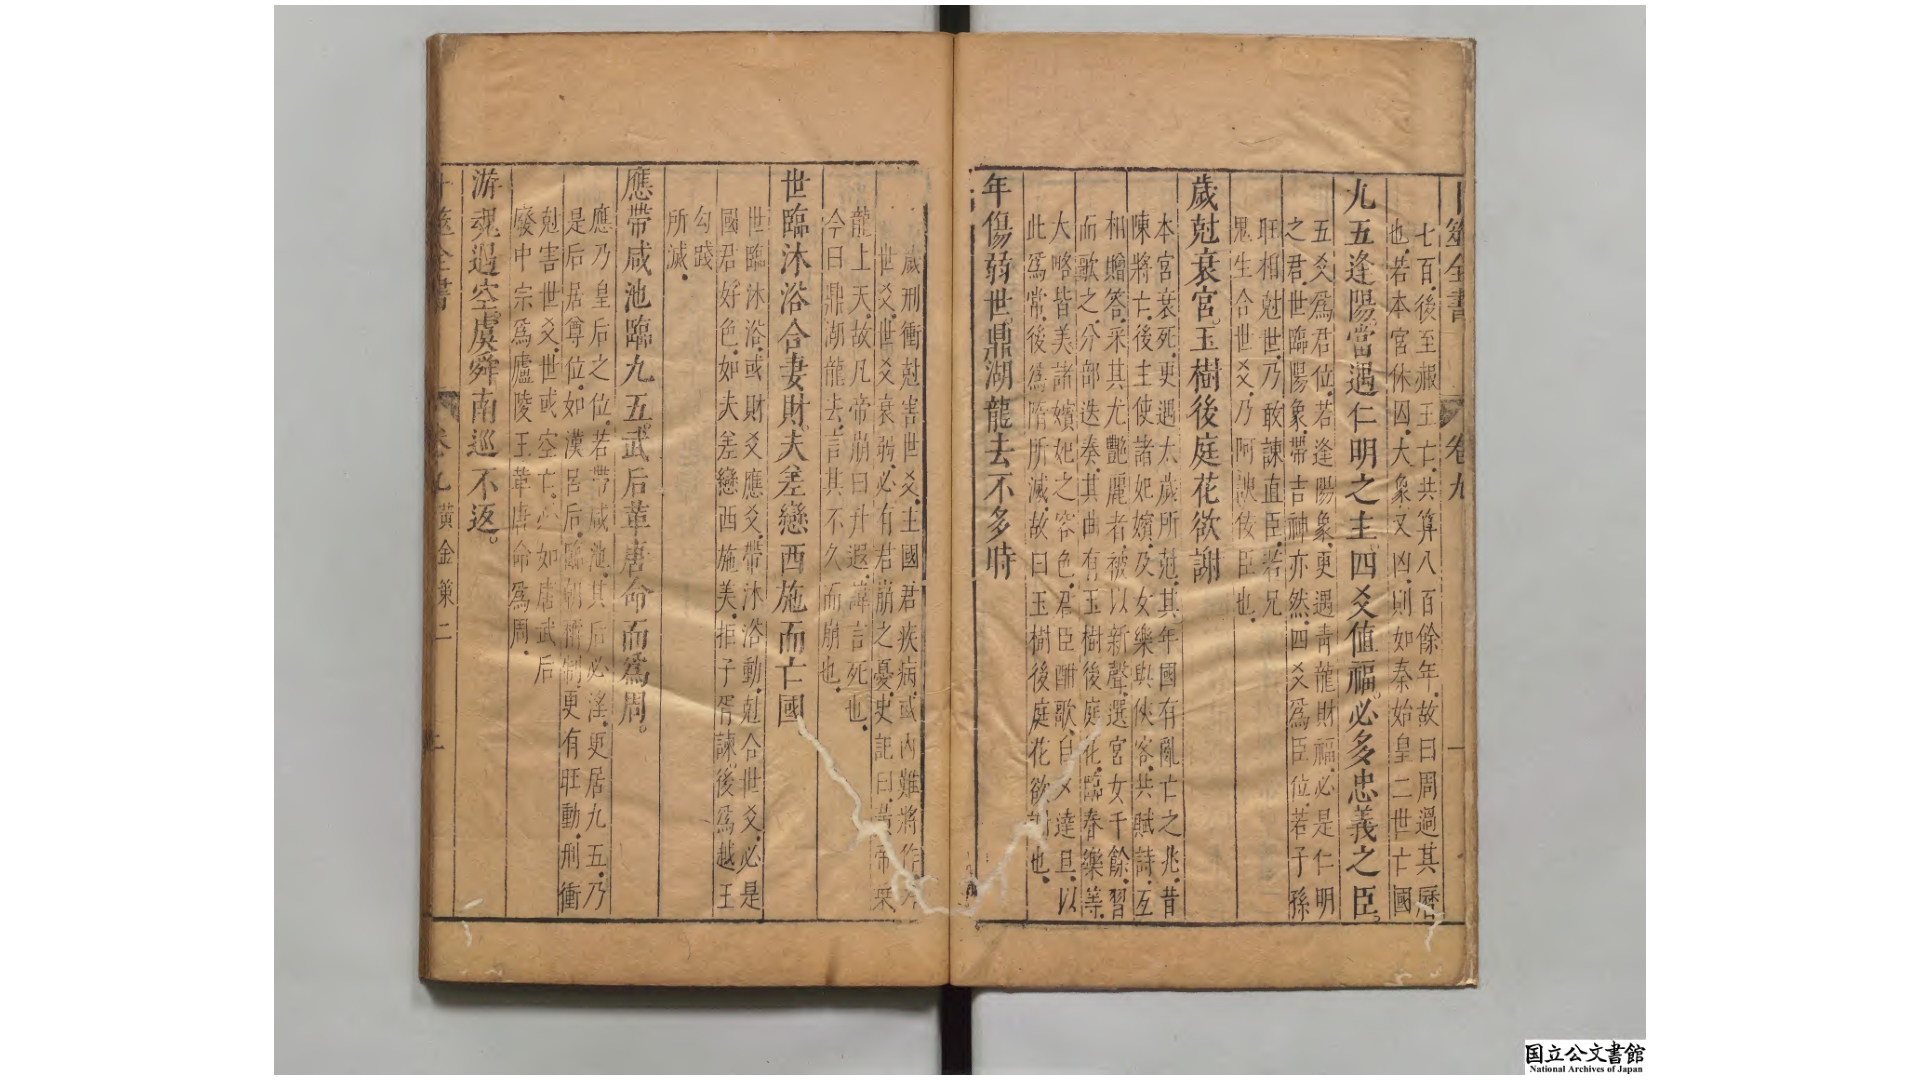 卜筮全書
卷九
一
七百後至赧王亡共算八百餘年故曰周過其曆
也若本宮休囚大象又凶則如秦始皇二世亡國
九五逢陽當遇仁明之主四爻值福必多忠義之臣
五爻爲君位若逢陽象更遇青龍財福必是仁明
之君世臨陽象帶吉神亦然四爻爲臣位若子孫
旺相尅世乃敢諫直臣若兄
鬼生合世爻乃阿諛侫臣也
歲尅衰宮玉樹後庭花欲謝
本宮衰死更遇太歲所尅其年國有亂亡之兆昔
陳將亡後主使諸妃嬪及女樂與俠客共賦詩互
相贈答采其尤艷麗者被以新聲選宮女千餘習
而歌之分部迭奏其曲有玉樹後庭花臨春樂等
大略皆美諸嬪妃之容色君臣酣歌自夕達旦以
此爲常後爲隋所滅故曰玉樹後庭花欲謝也
年傷弱世鼎湖龍去不多時
歲刑衝尅害世爻主國君疾病或內難將作
世爻世爻衰弱必有君崩之憂史記曰黃帝
龍上天故凡帝崩曰升遐諱言死也
今曰鼎湖龍去言其不久而崩也
世臨沐浴合妻財夫差戀西施而亡國
世臨沐浴或財爻應爻帶沐浴動尅合世爻必是
國君好色如夫差戀西施美拒子胥諫後爲越王
勾踐
所滅
應帶咸池臨九五武后革唐命而爲周
應乃皇后之位若帶咸池其后必淫更居九五乃
是后居尊位如漢呂后臨朝稱制更有旺動刑衝
尅害世爻世或空亡必如唐武后
廢中宗爲廬陵王革唐命爲周
游魂遇空虞舜南巡不返
卜筮全書
卷九
黃金策二
二
国立公文書館
National Archives of Japan